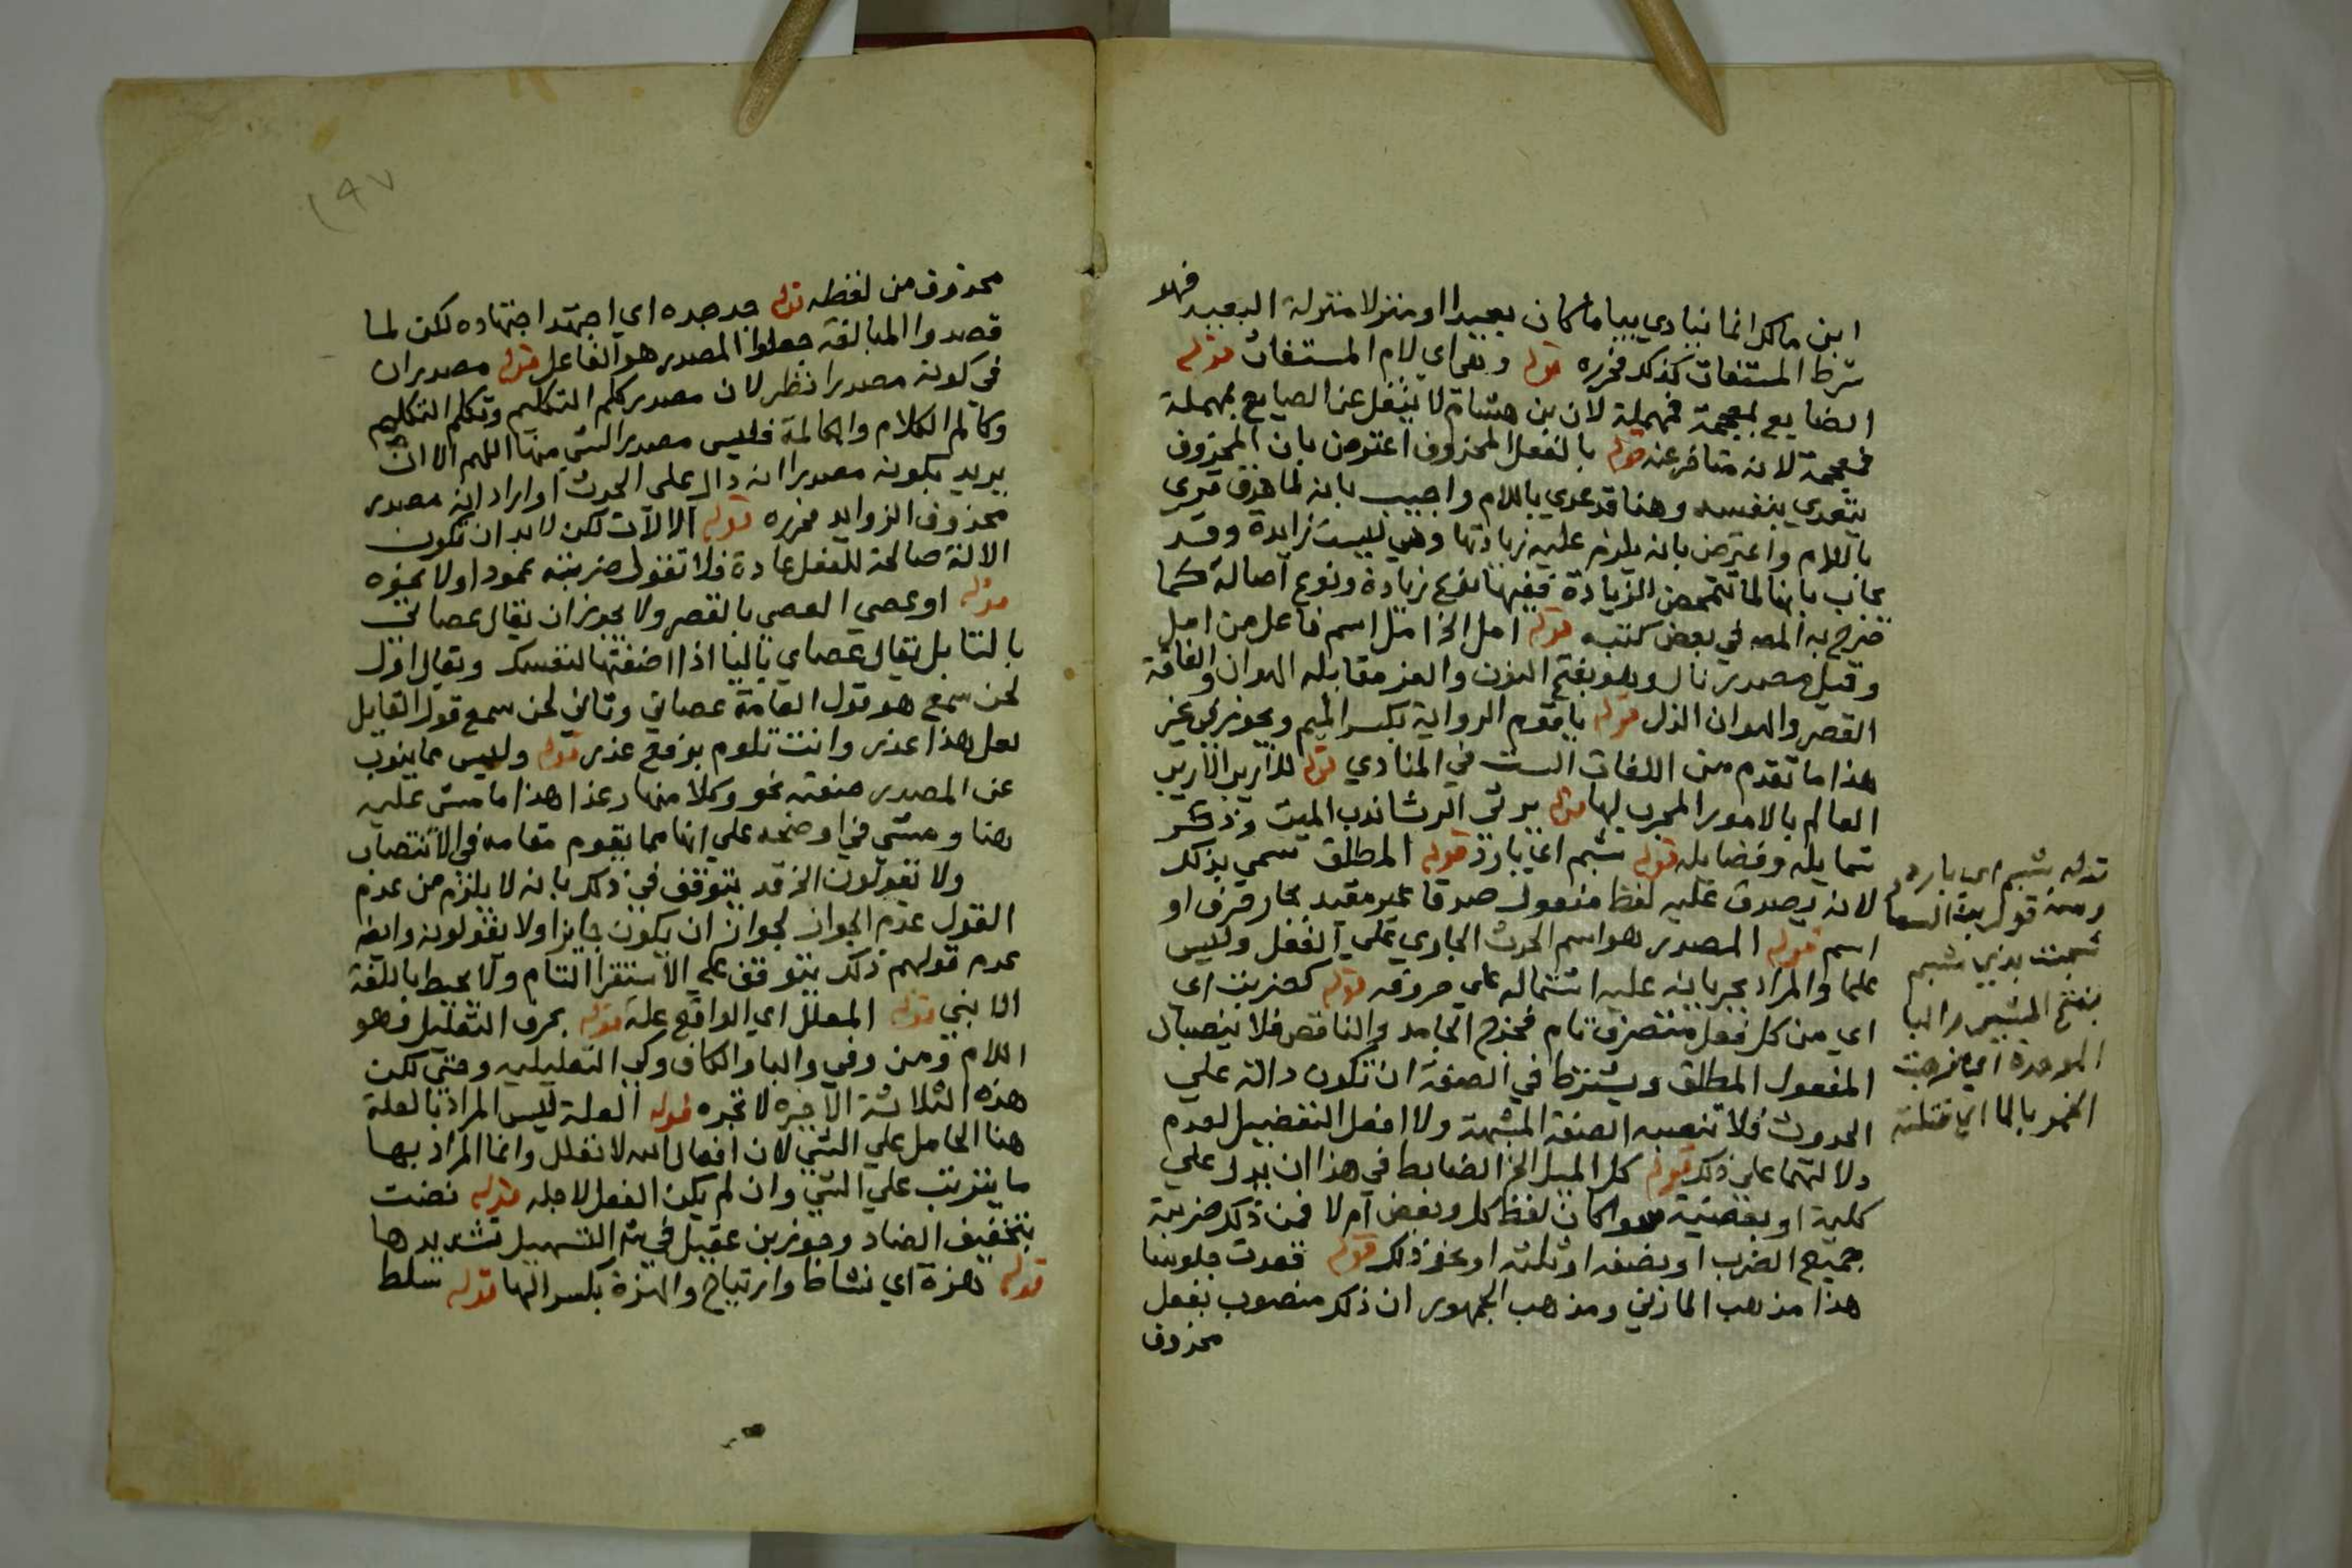 ابن مالك انما ينادي بيا ما كان بعيدا او منزلا منزلة البعيد فهو
شرط المستغاث كذلك فحرره قوله وبقى اي لام المستغاث قوله
الضايع بمعجمة فمهملة لان بن هشام لا ينقل عن الصايع بمهملة
فمعجمة لانه متاخر عنه قوله بالفعل المحذوف اعترض بان المحذوف
يتعدي بنفسه وهنا قد عدي باللام واجيب بانه لما حذف قوى
باللام واعترض بانه يلزم عليه زيادتها وهي ليست زايدة وقد
يجاب بانها لما تتمحض الزيادة ففيها نوع زيادة ونوع اصالة كما
صرح به المصه في بعض كتبه قوله امل الخ امل اسم فاعل من امل
وقيل مصدر نال وهو بفتح النون والعز مقابله الهوان والفاقة
القصر والهوان الذل قوله ياقوم الرواية بكسر الميم ويجوز في غير
هذا ما تقدم من اللغات الست في المنادي قوله للاريب الاريب
العالم بالامور المجرب لها قوله يرثى الرثا ندب الميت وذكر
شمايله وفضايله قوله شبم اي بارد قوله المطلق سمي بذلك
لانه يصدق عليه لفظ مفعول صدقا غير مقيد بجار حرف او
اسم قوله المصدر هو اسم الحدث الجاري على الفعل وليس
علما والمراد بجريانه عليه اشتماله على حروفه قوله كضربت اى
اي من كل فعل متصرف تام فخرج الجامد والناقص فلا ينصبان
المفعول المطلق ويشترط في الصفة ان تكون دالة علي
الحدوث فلا تنصبه الصفة المشبهة ولا افعل التفضيل لعدم
دلالتهما على ذلك قوله كل الميل الخ الضابط في هذا ان يدل علي
كلية او بعضية سوا كان لفظ كل وبعض ام لا فمن ذلك ضربته
جميع الضرب او نصفه او ثلثه او نحو ذلك قوله قعدت جلوسا
هذا مذهب المازني ومذهب الجمهور ان ذلك منصوب بفعل
محذوف
قوله شبم اي بارد
ومنه قول بانت سعاد
شجت بذي شبم
بفتح الشين والبا
الموحدة اي مزجت
الخمر بالما اي قتلته
١٩٧
محذوف من لفظه قوله جد جده اي اجتهد اجتهاده لكن لما
قصدوا المبالغة جعلوا المصدر هو الفاعل قوله مصدران
في كونه مصدرا نظر لان مصدر كلم التكليم وتكلم التكليم
وكالم الكلام والمكالمة فليس مصدرا لشي منها اللهم الا ان
يريد بكونه مصدرا انه دال على الحدث او اراد انه مصدر
محذوف الزوايد فحرره قوله الالات لكن لابد ان تكون
الالة صالحة للفعل عادة فلا تقول ضربته عمودا ولا نحوه
قوله او عصي العصي بالقصر ولا يجوز ان يقال عصاتي
بالتا بل يقال عصاي باليا اذا اضفتها لنفسك ويقال اول
لحن سمع هو قول العامة عصاتي وثاني لحن سمع قول القايل
لعل لهذا عذر وانت تلوم برفع عذر قوله وليس مما ينوب
عن المصدر صفته نحو وكلا منها رغدا هذا ما مشى عليه
هنا ومشى في اوضحه على انها مما يقوم مقامه في الانتصاب
ولا تقولون الخ قد يتوقف في ذلك بانه لا يلزم من عدم
القول عدم الجواز لجواز ان يكون جايزا ولا يقولونه وايضا
عدم قولهم ذلك يتوقف على الاستقرا التام ولا يحيط باللغة
الا نبي قوله المعلل اي الواقع علة قوله بحرف التعليل فهو
اللام ومن وفي والبا والكاف وكي التعليليه وحتى لكن
هذه الثلاثة الاخيرة لا تجره قوله العلة ليس المراد بالعلة
هنا الحامل علي الشي لان افعال الله لا تعلل وانما المراد بها
ما يترتب علي الشي وان لم يكن الفعل لاجله قوله نضت
بتخفيف الضاد وجوز بن عقيل في شرح التسهيل تشديدها
قوله هزة اي نشاط وارتياح والهزة بكسر الها قوله سلط